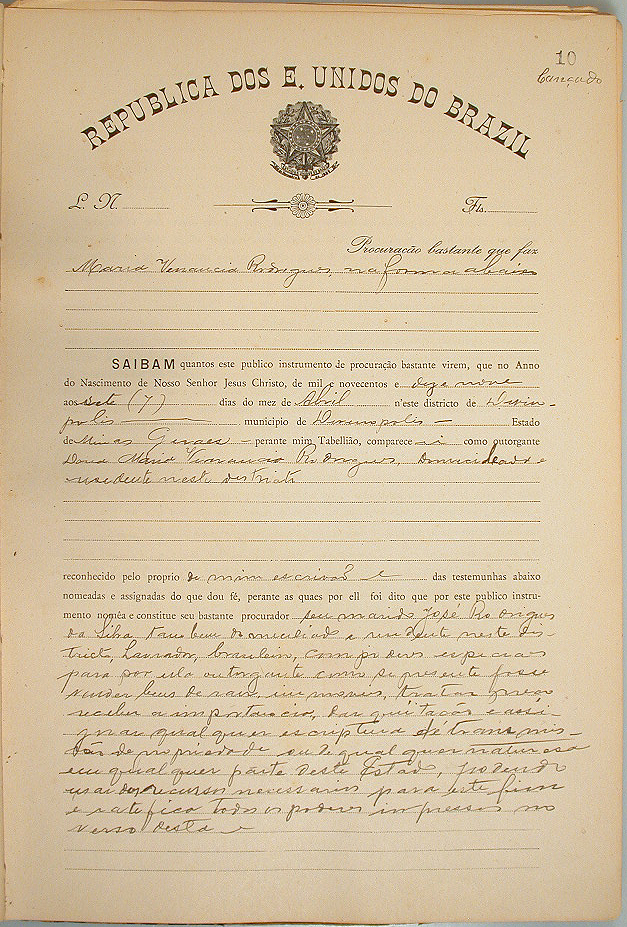 10
REPUBLICA DOS E. UNIDOS DO BRAZIL
L. N.
Fls.
Procuração bastante que faz
Maria Venancia Rodrigues, na forma abaixo
SAIBAM quantos este publico instrumento de procuração bastante virem, que no Anno
do Nascimento de Nosso Senhor Jesus Christo, de mil e novecentos e dezenove
aos sete (7) dias do mez de Abril n'este districto de Divin-
polis municipio de Divinopolis Estado
de Minas Geraes perante mim Tabellião, comparece-i como outorgante
Dona Maria Venancia Rodrigues, domiciliada e
residente neste districto
reconhecido pelo proprio de mim escrivão e das testemunhas abaixo
nomeadas e assignadas do que dou fé, perante as quaes por ell foi dito que por este publico instru-
mento noméa e constitue seu bastante procurador seu marido José Rodrigues
da Silva tambem domiciliado e residente neste dis-
tricto, Lavrador, brasileiro, com poderes especiaes
para por ella outorgante como se presente fosse
vender bens de raiz, immoveis, tratar preço
receber a importancia, dar quitação e assi-
gnar qualquer escriptura de transmis-
são de propriedade ou de qualquer naturesa
em qualquer parte deste Estado, podendo
usar dos recursos necessarios para este fim
e ratifica todos os poderes impressos no
verso desta e